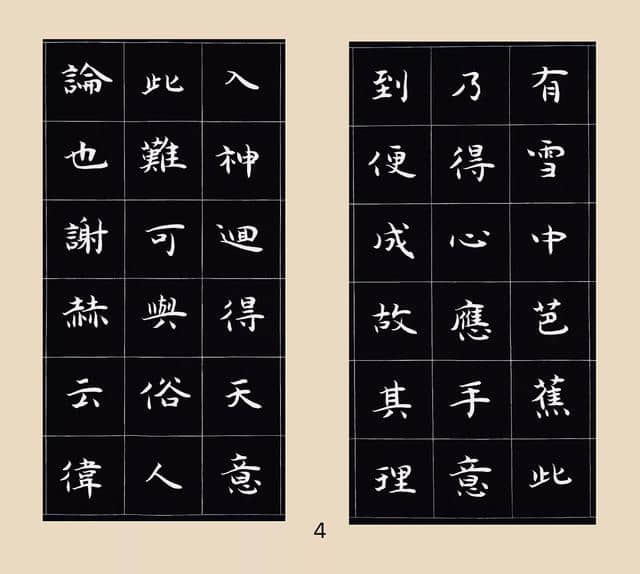 有雪中芭蕉此
乃得心應手意
到便成故其理
入神迴得天意
此難可與俗人
論也謝赫云偉
4